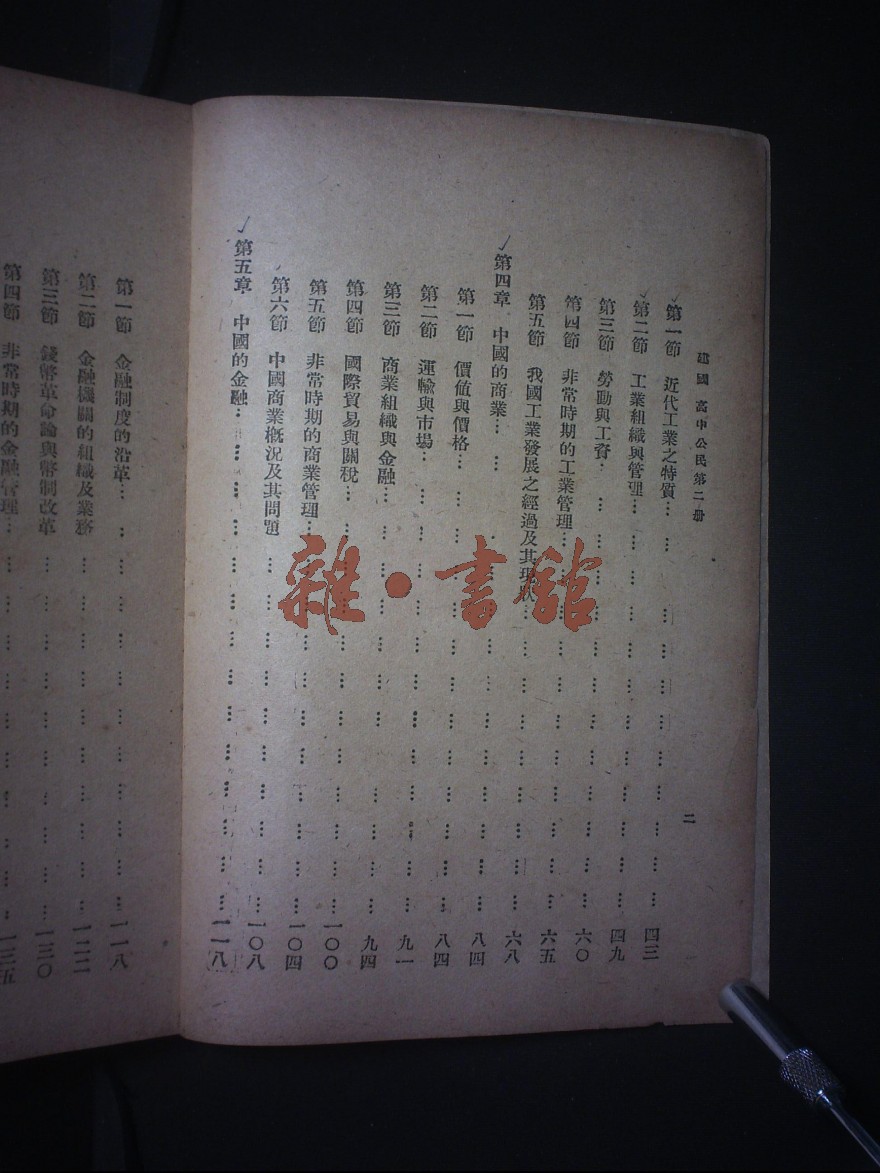 建國 高中公民第二册
二
第一節 近代工業之特質… … … … … … … … … 四三
第二節 工業組織與管理… … … … … … … … … 四九
第三節 勞動與工資… … … … … … … … … … 六〇
第四節 非常時期的工業管理… … … … … … … … 六五
第五節 我國工業發展之經過及其現狀… … … … … … 六八
第四章 中國的商業… … … … … … … … … … 八四
第一節 價值與價格… … … … … … … … … … 八四
第二節 運輸與市場… … … … … … … … … … 九一
第三節 商業組織與金融… … … … … … … … … 九四
第四節 國際貿易與關稅… … … … … … … … … 一〇〇
第五節 非常時期的商業管理… … … … … … … … 一〇四
第六節 中國商業概況及其問題 … … … … … … … 一〇八
第五章 中國的金融… … … … … … … … … … 一一八
第一節 金融制度的沿革… … … … … … … … … 一一八
第二節 金融機關的組織及業務 … … … … … … … 一二二
第三節 錢幣革命論與幣制改革 … … … … … … … 一三〇
第四節 非常時期的金融管理… … … … … … … … 一三五
雜·書館